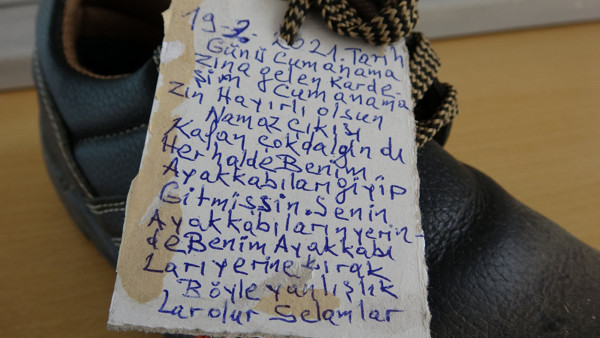 19-2.2021.Tarih
Günü Cumanama
Zina gelen Karde-
şim Cumanama
zin Hayırlı olsun
Namaz Çıkışı
Kafan çokdalgındı
Her halde Benim
Ayakkabıları giyip
Gitmişsin. Senin
Ayakkabıların yerin-
de Benim Ayakkabı
Ları yerine bırak
Böyle yanlışlık
Lar olur Selamlar